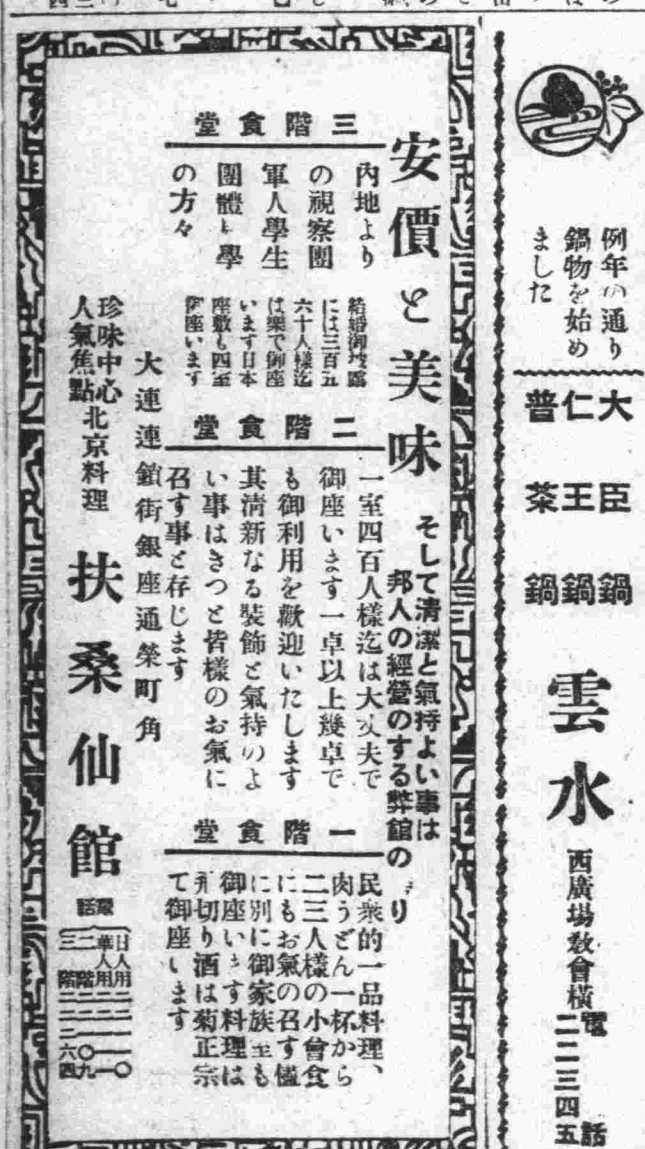 例年の通り
鍋物を始め
ました
大臣鍋
仁王鍋
普茶鍋
雲水
西廣場教會横
電話二二三四五
安價と美味
そして清潔と氣持よい事は
邦人の經營のする弊館の
り
三階食堂
內地より
の視察團
軍人學生
團體
學
の方々
結婚御披露
には三百五
六十人様迄
は樂で御座
います日本
座敷も四室
御座います
二階食堂
一室四百人様迄は大丈夫で
御座います一卓以上幾卓で
も御利用を歡迎いたします
其清新なる裝飾と氣持のよ
い事はきつと皆様のお氣に
召す事と存じます
一階食堂
民衆的一品料理、
肉うどん一杯から
二三人様の小會食
にもお氣の召す儘
に別に御家族
も
御座います料理は
切り酒は菊正宗
て御座います
大連連鎖街銀座通榮町角
珍味中心
人氣焦點
北京料理
扶桑仙館
電話
日人用二二一一〇
華人用二二一〇一
二階
三階